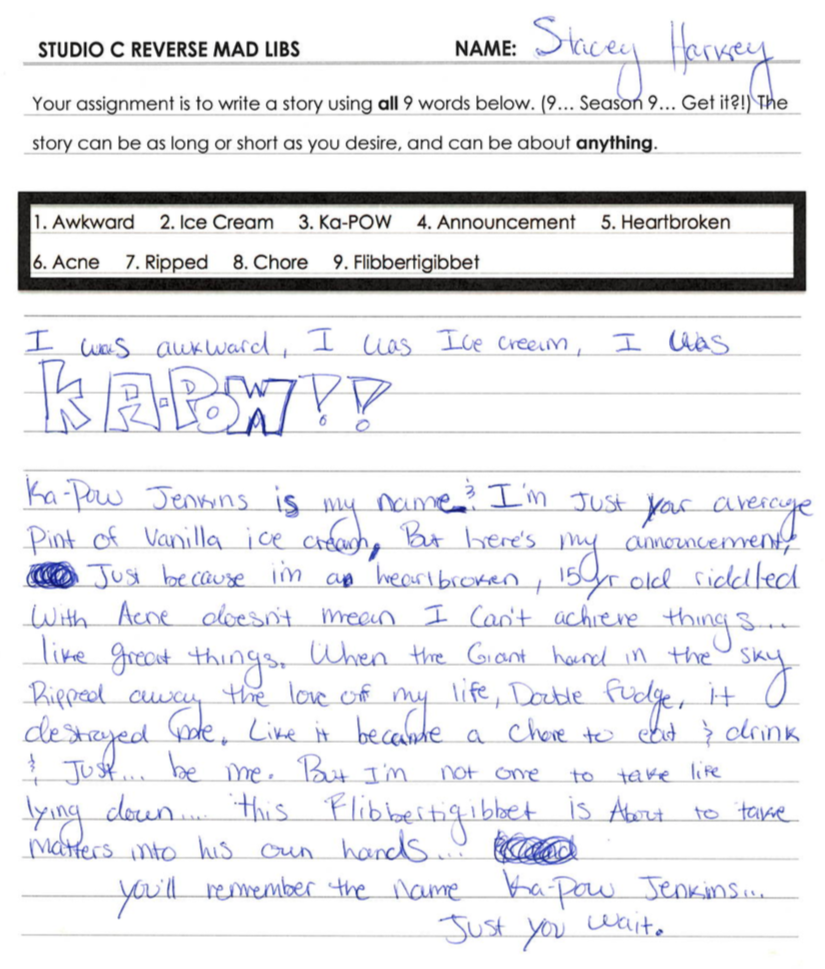 STUDIO C REVERSE MAD LIBS NAME: Stacey Harkey
Your assignment is to write a story using all 9 words below. (9... Season 9... Get it?!) The
story can be as long or short as you desire, and can be about anything.
1. Awkward 2. Ice Cream 3. Ka-POW 4. Announcement 5. Heartbroken
6. Acne 7. Ripped 8. Chore 9. Flibbertigibbet
I was awkward, I was Ice cream, I was
KA-POW!!
Ka-Pow Jenkins is my name & I'm Just your average
Pint of Vanilla ice cream, But here's my announcement,
Just because i'm a heartbroken, 15yr old riddled
With Acne doesn't mean I Can't achieve things...
like great things. When the Giant hand in the sky
Ripped away the love of my life, Double fudge, it
destroyed me. Like it became a Chore to eat & drink
& Just... be me. But I'm not one to take life
lying down.... this Flibbertigibbet is About to take
Matters into his own hands...
you'll remember the name Ka-Pow Jenkins...
Just you wait.